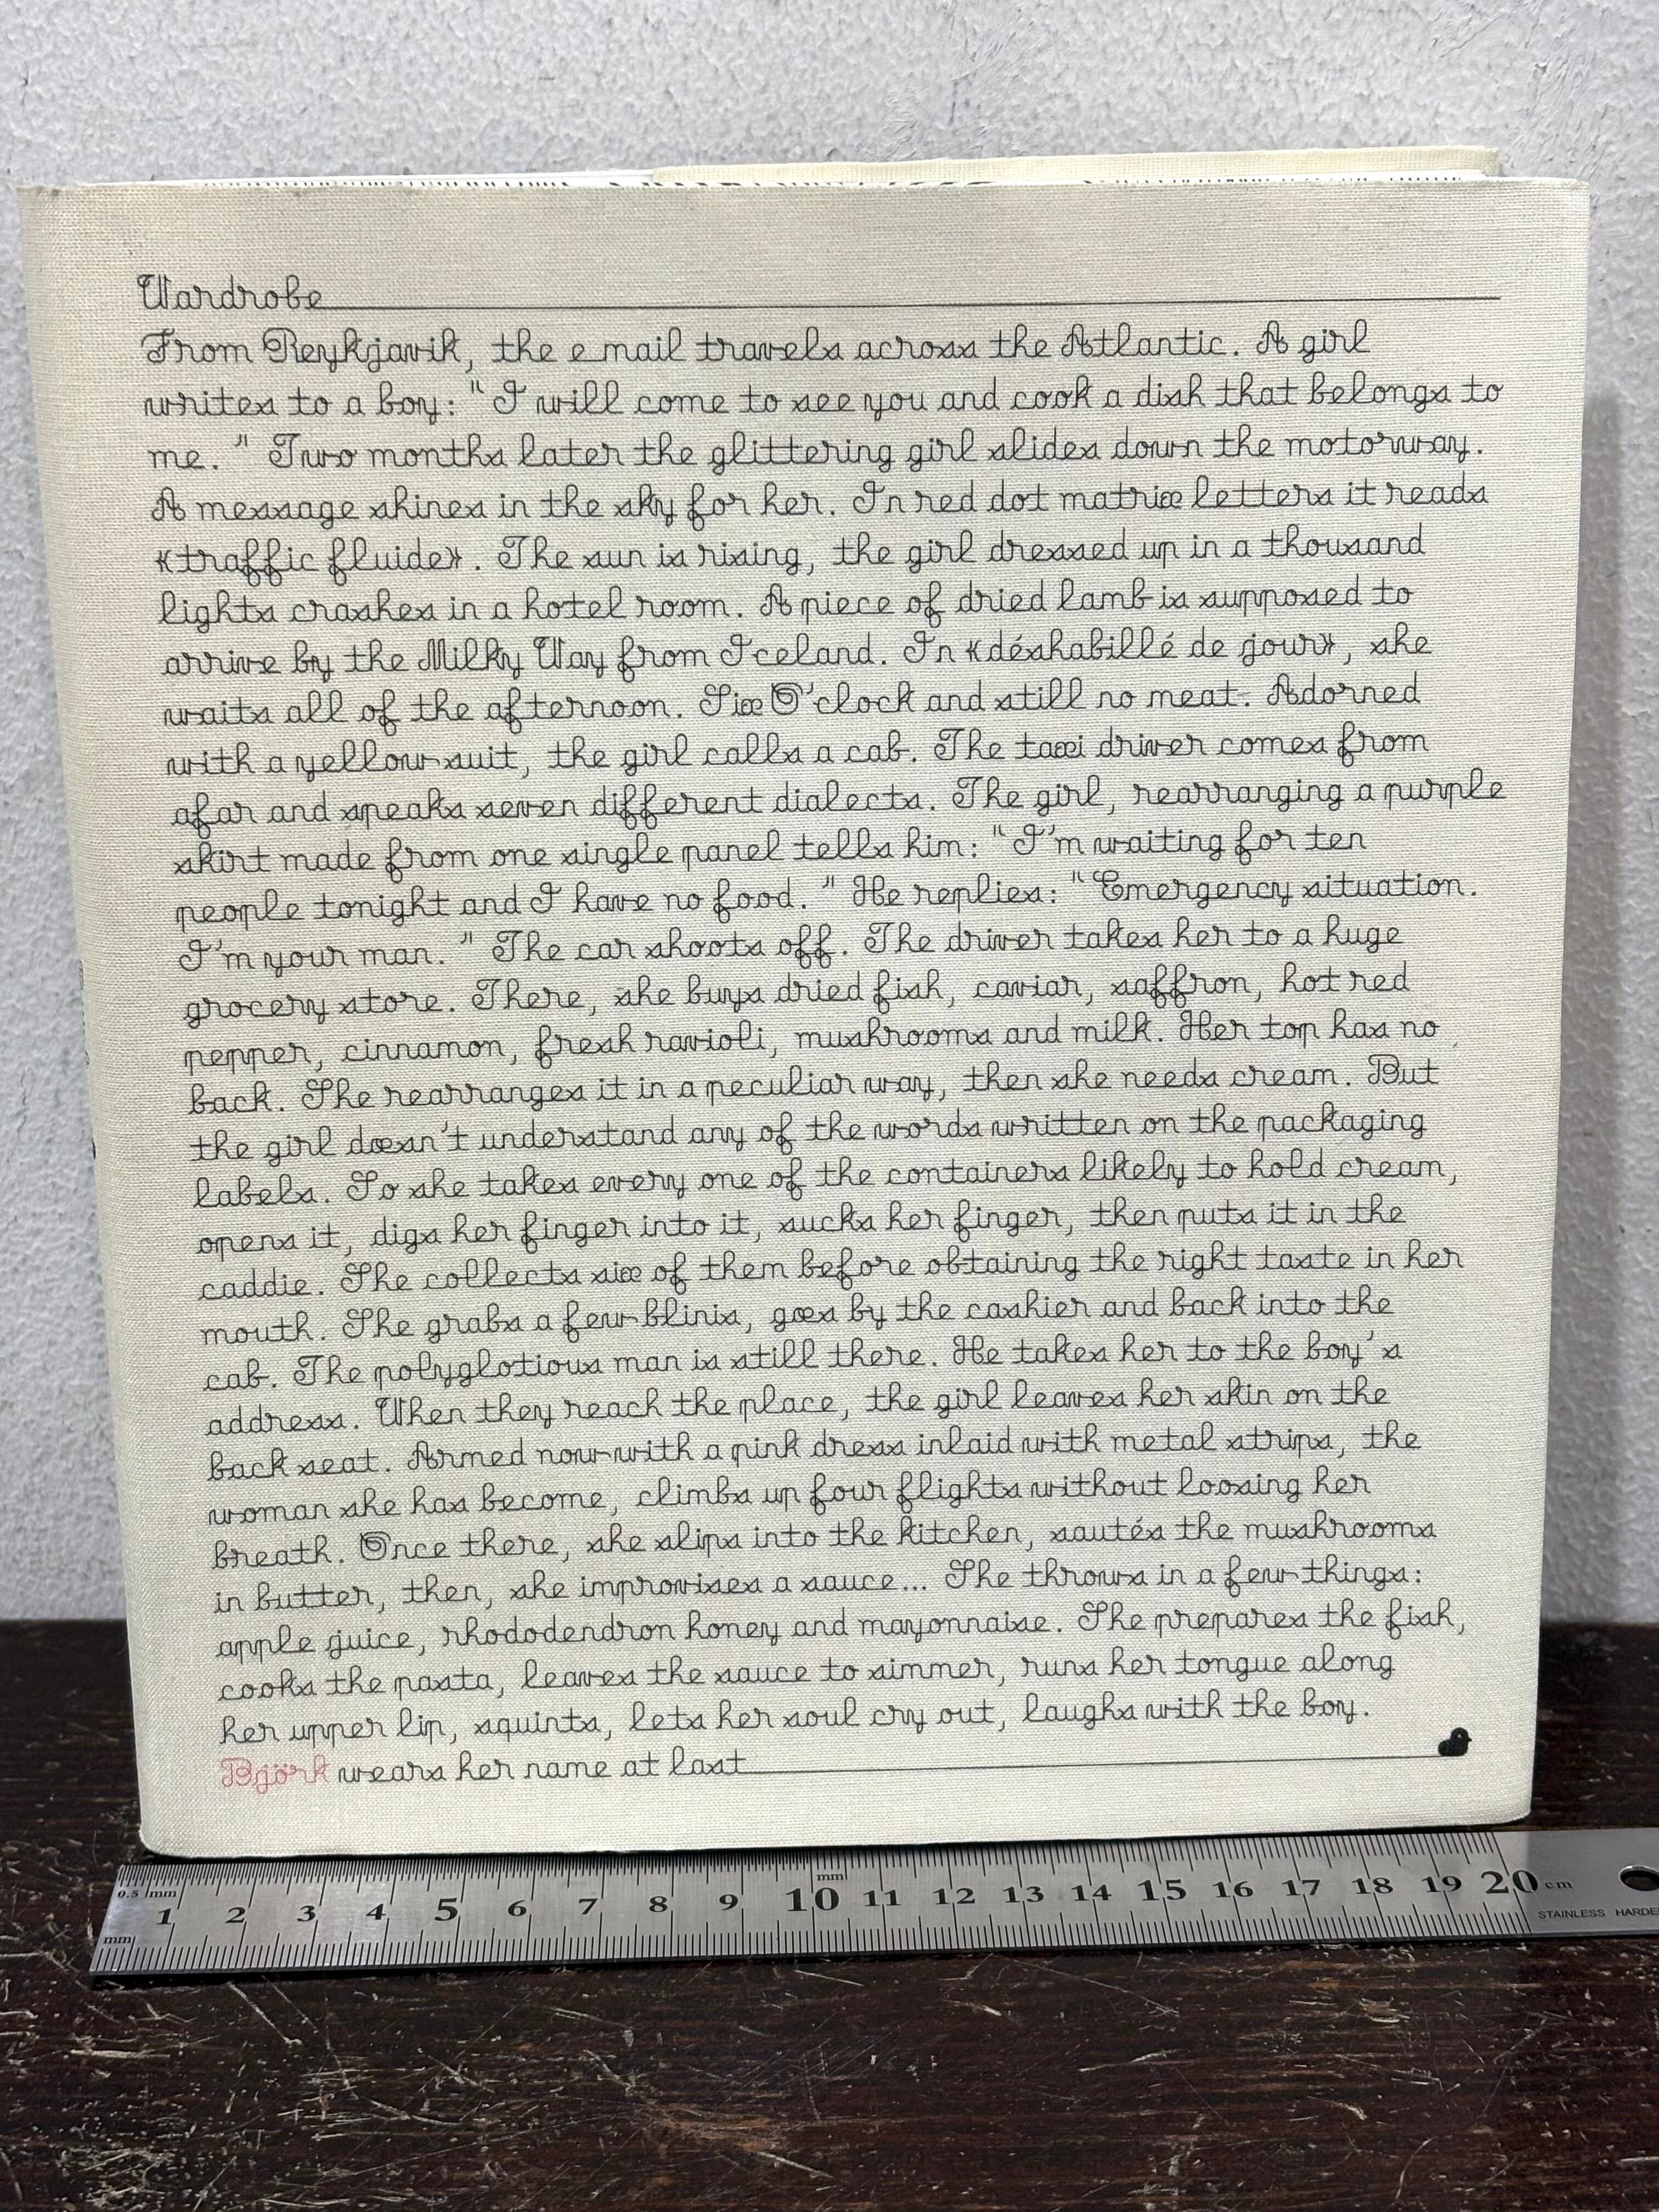 Wardrobe
From Reykjavik, the e mail travels across the Atlantic. A girl
writes to a boy: "I will come to see you and cook a dish that belongs to
me." Two months later the glittering girl slides down the motorway.
A message shines in the sky for her. In red dot matrix letters it reads
«traffic fluide». The sun is rising, the girl dressed up in a thousand
lights crashes in a hotel room. A piece of dried lamb is supposed to
arrive by the Milky Way from Iceland. In «déshabillé de jour», she
waits all of the afternoon. Six O'clock and still no meat. Adorned
with a yellow suit, the girl calls a cab. The taxi driver comes from
afar and speaks seven different dialects. The girl, rearranging a purple
skirt made from one single panel tells him: "I'm waiting for ten
people tonight and I have no food." He replies: "Emergency situation.
I'm your man." The car shoots off. The driver takes her to a huge
grocery store. There, she buys dried fish, caviar, saffron, hot red
pepper, cinnamon, fresh ravioli, mushrooms and milk. Her top has no
back. She rearranges it in a peculiar way, then she needs cream. But
the girl doesn't understand any of the words written on the packaging
labels. So she takes every one of the containers likely to hold cream,
opens it, digs her finger into it, sucks her finger, then puts it in the
caddie. She collects six of them before obtaining the right taste in her
mouth. She grabs a few blinis, goes by the cashier and back into the
cab. The polyglotious man is still there. He takes her to the boy's
address. When they reach the place, the girl leaves her skin on the
back seat. Armed now with a pink dress inlaid with metal strips, the
woman she has become, climbs up four flights without loosing her
breath. Once there, she slips into the kitchen, sautés the mushrooms
in butter, then, she improvises a sauce... She throws in a few things:
apple juice, rhododendron honey and mayonnaise. She prepares the fish,
cooks the pasta, leaves the sauce to simmer, runs her tongue along
her upper lip, squints, lets her soul cry out, laughs with the boy.
Björk wears her name at last
0.5 mm mm cm
1 2 3 4 5 6 7 8 9 10 11 12 13 14 15 16 17 18 19 20
mm STAINLESS HARDE